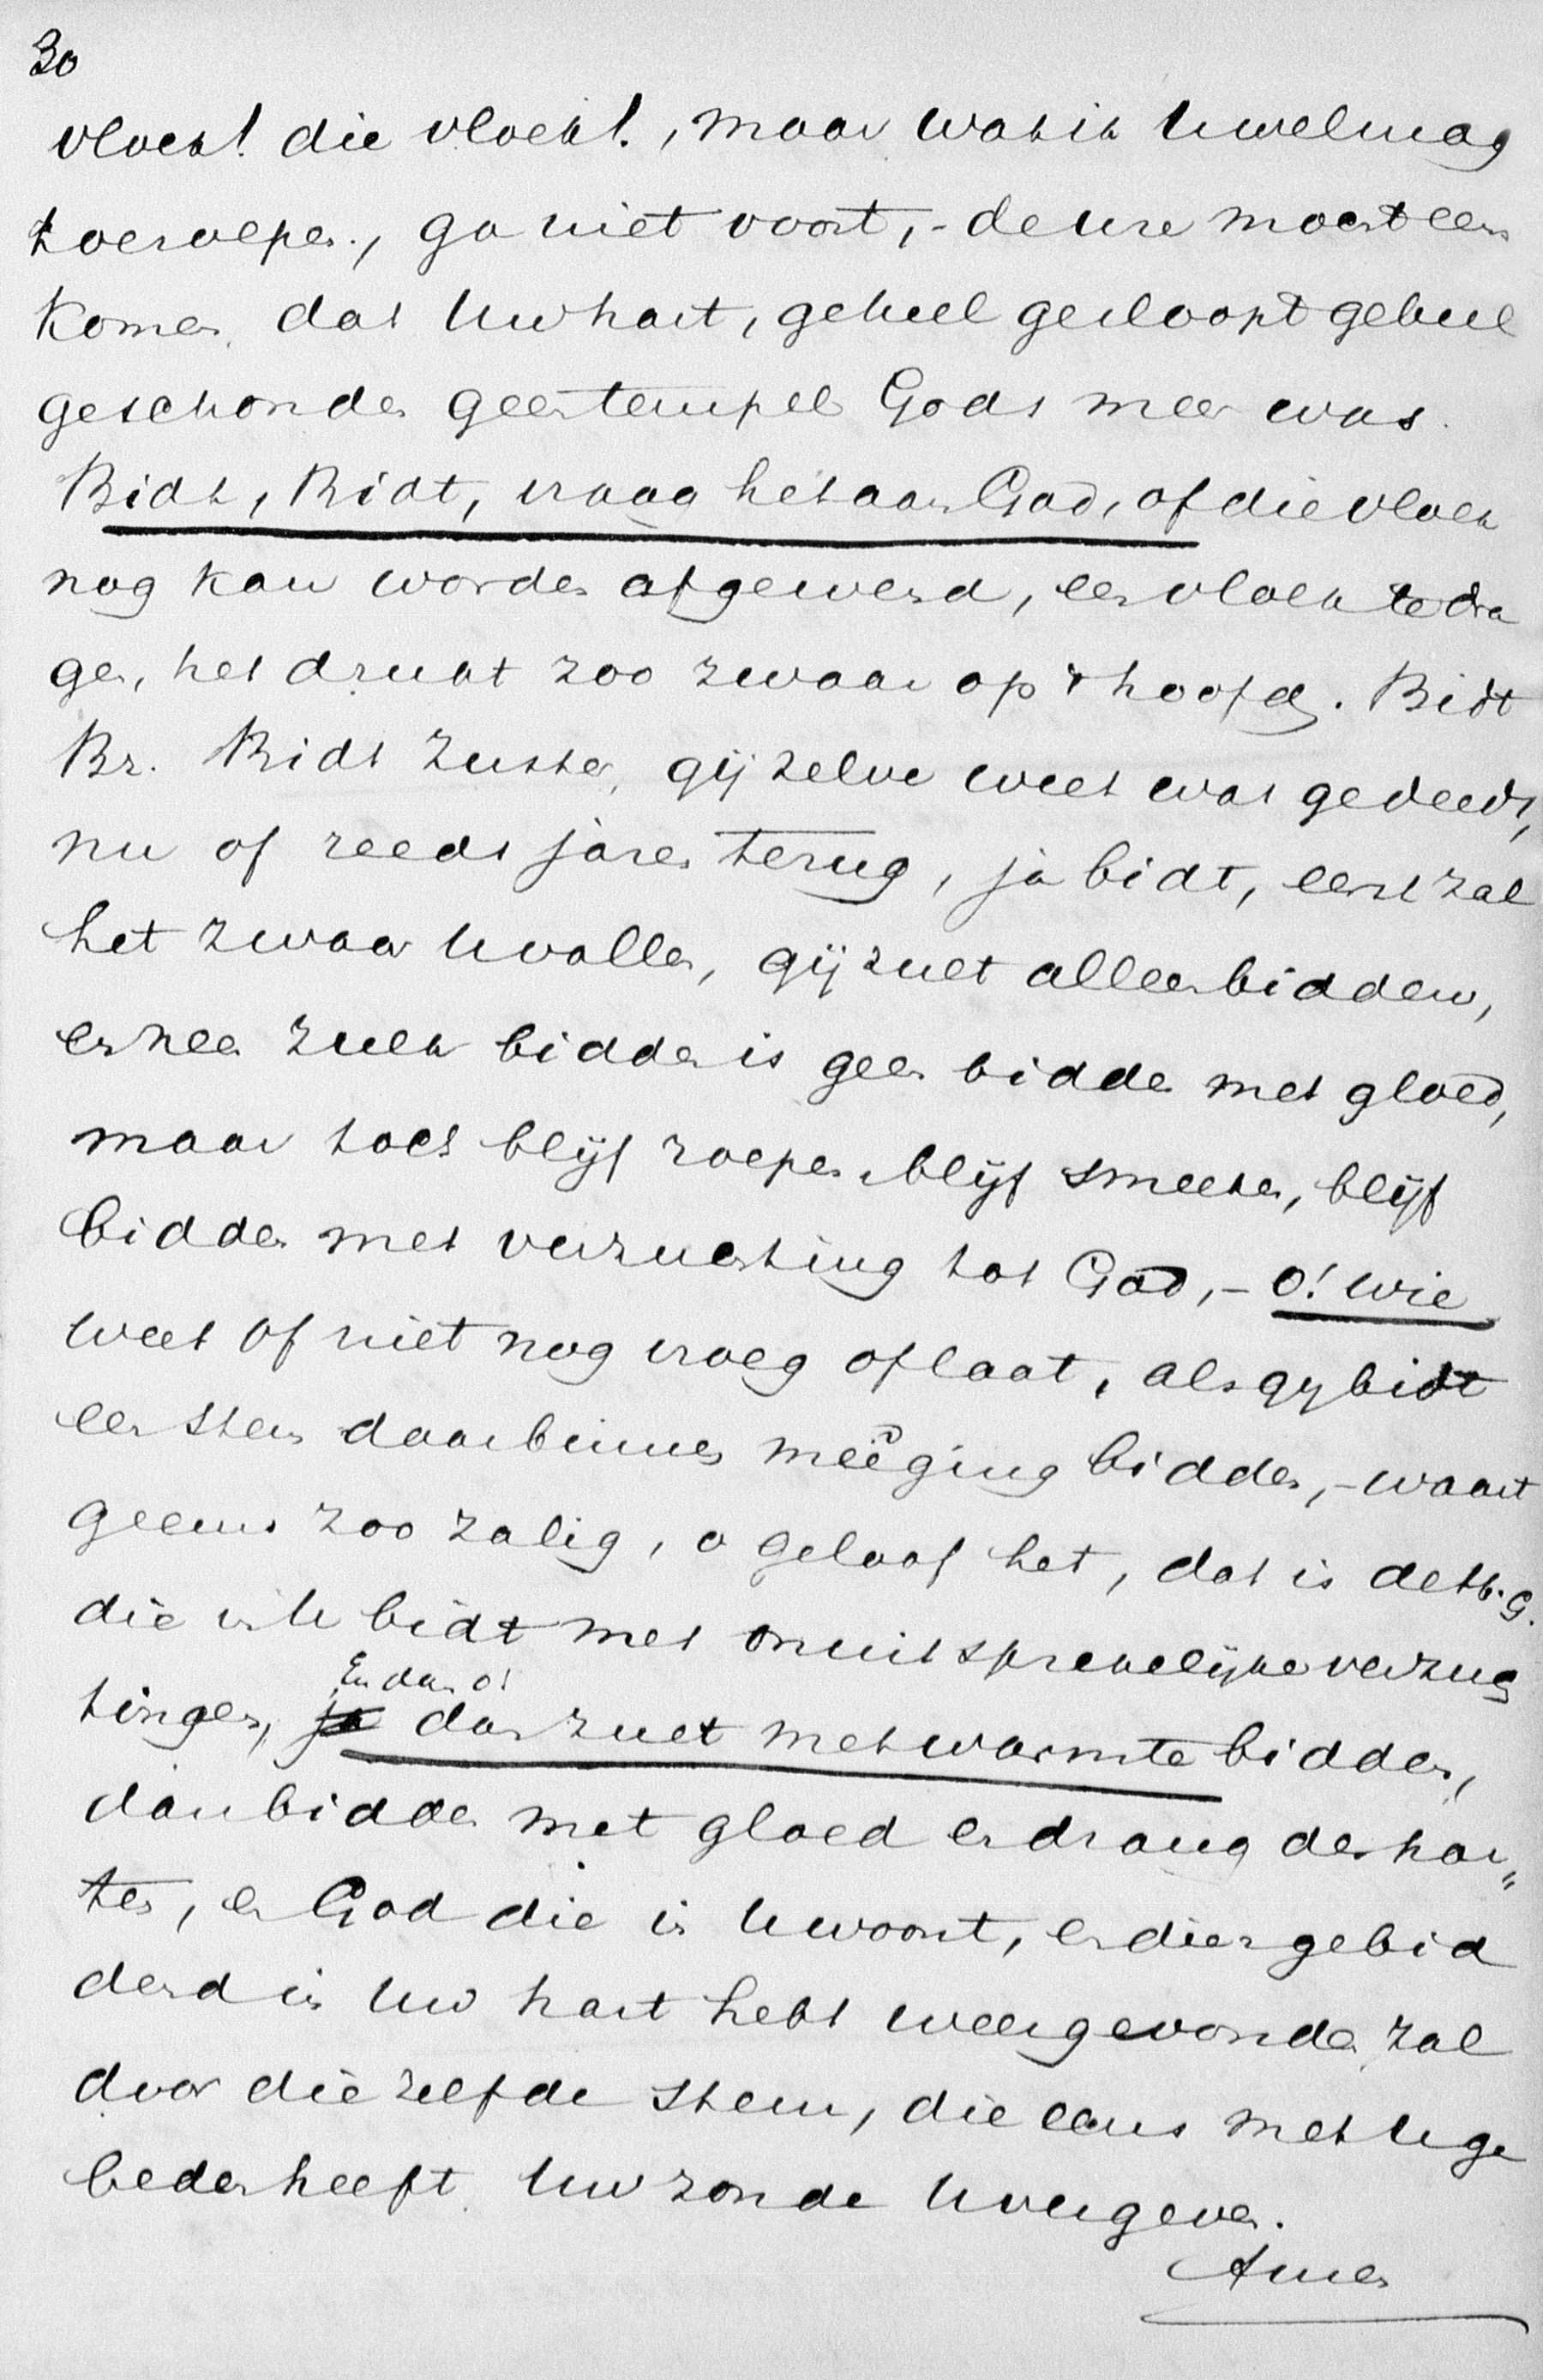 30
vloek! die vloek!, maar wat ik U wel mag
toeroepen, ga niet voort, - de ure moest eens
komen dat Uw hart, geheel gesloopt geheel
geschonden geen tempel Gods meer was.
Bidt, Bidt, vraag het aan God, of die vloek
nog kan worden afgewend, een vloek te dra
gen, het drukt zoo zwaar op 't hoofd. Bidt
Br. Bidt Zuster, gij zelve weet wat ge deedt,
nu of reeds jaren terug, ja bidt, eerst zal
het zwaar U vallen, gij zult alleen bidden,
en nee zulk bidden is geen bidden met gloed,
maar toch blijf roepen blijf smeeken, blijf
bidden met verzuchting tot God, - o! wie
weet of niet nog vroeg of laat, als gij bidt
een stem daarbinnen meêging bidden, - waart
geens zoo zalig, o geloof het, dat is de H. G.
die in U bidt met onuitsprekelijke verzuch
En dan o!
tingen, ja dan zult met warmte bidden,
dan bidden met gloed en drang des har„
ten, en God die in U woont, en dien ge bid
dend in Uw hart hebt weergevonden zal
door diezelfde stem, die eens met U ge
beden heeft Uw zonde U vergeven.
Amen